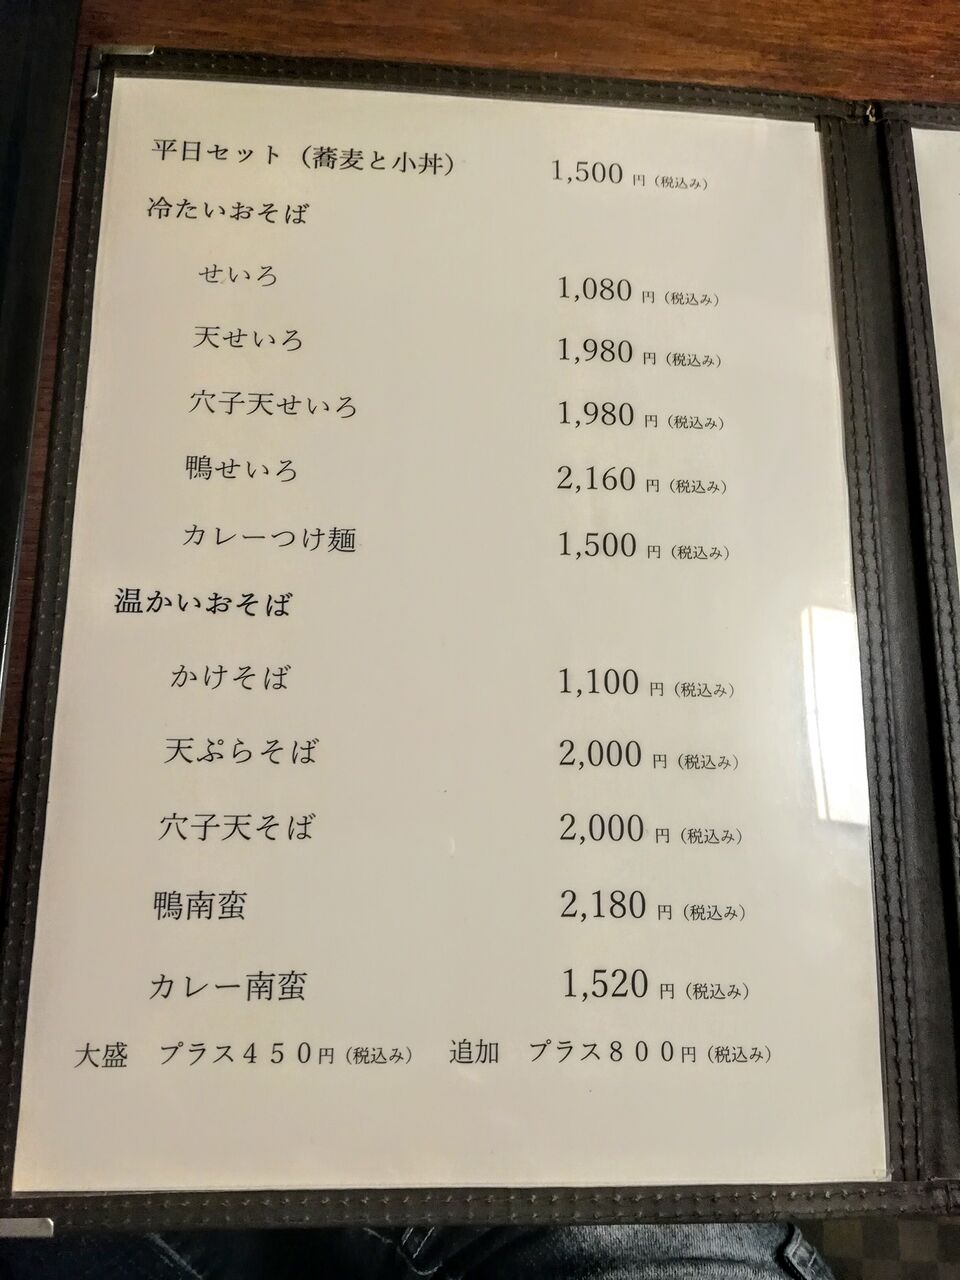 平日セット（蕎麦と小丼） 1,500 円（税込み）
冷たいおそば
せいろ 1,080 円（税込み）
天せいろ 1,980 円（税込み）
穴子天せいろ 1,980 円（税込み）
鴨せいろ 2,160 円（税込み）
カレーつけ麺 1,500 円（税込み）
温かいおそば
かけそば 1,100 円（税込み）
天ぷらそば 2,000 円（税込み）
穴子天そば 2,000 円（税込み）
鴨南蛮 2,180 円（税込み）
カレー南蛮 1,520 円（税込み）
大盛　プラス４５０円（税込み）　追加　プラス８００円（税込み）